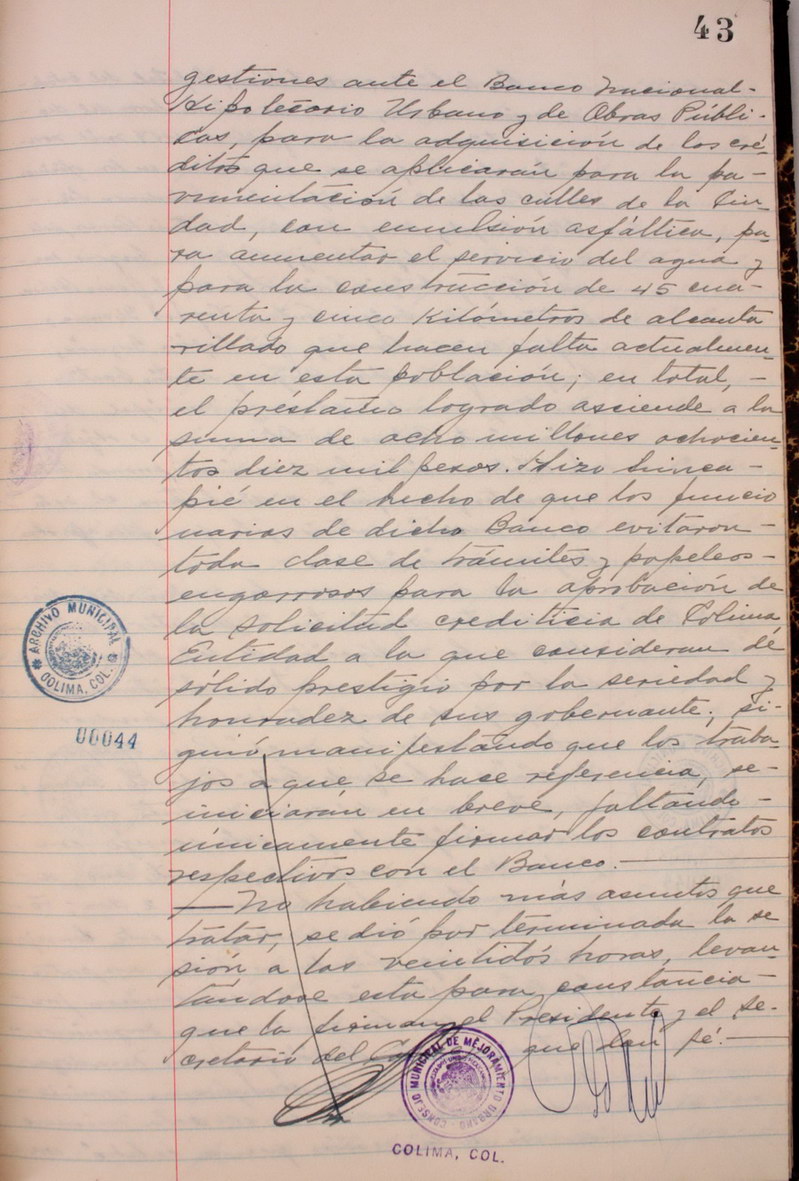 43
gestiones ante el Banco Nacional-
Hipotecario Urbano y de Obras Públi-
cas, para la adquisición de los cré-
ditos que se aplicarán para la pa-
vimentación de las calles de la Ciu-
dad, con emulsión asfáltica, pa-
ra aumentar el servicio del agua y
para la construcción de 45 cua-
renta y cinco Kilómetros de alcanta
rillado que hacen falta actualmen-
te en esta población; en total, -
el préstamo logrado asciende a la
suma de ocho millones ochocien-
tos diez mil pesos. Hizo hinca-
pié en el hecho de que los funcio
narios de dicho Banco evitaron-
toda clase de trámites y papeleos-
engorrosos para la aprobación de
la solicitud crediticia de Colima,
Entidad a la que consideran de
sólido prestigio por la seriedad y
honradez de sus gobernante; si-
guió manifestando que los traba-
jos a que se hace referencia, se-
iniciarán en breve, faltando-
únicamente firmar los contratos
respectivos con el Banco.-
— No habiendo más asuntos que
tratar, se dió por terminada la se
sión a las veintidós horas, levan-
tándose esta para constancia-
que la firman el Presidente y el Se-
cretario del que dan fé.-
ARCHIVO MUNICIPAL
COLIMA, COL.
00044
CONSEJO MUNICIPAL DE MEJORAMIENTO URBANO
COLIMA, COL.